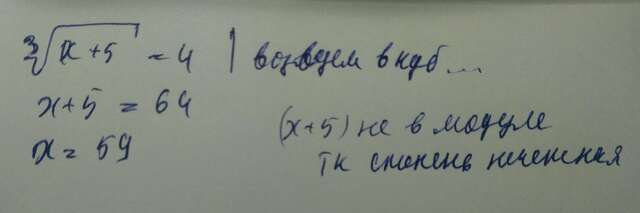 ∛(x+5) = 4 | возведем в куб...
x+5 = 64
x = 59
(x+5) не в модуле
тк степень нечетная